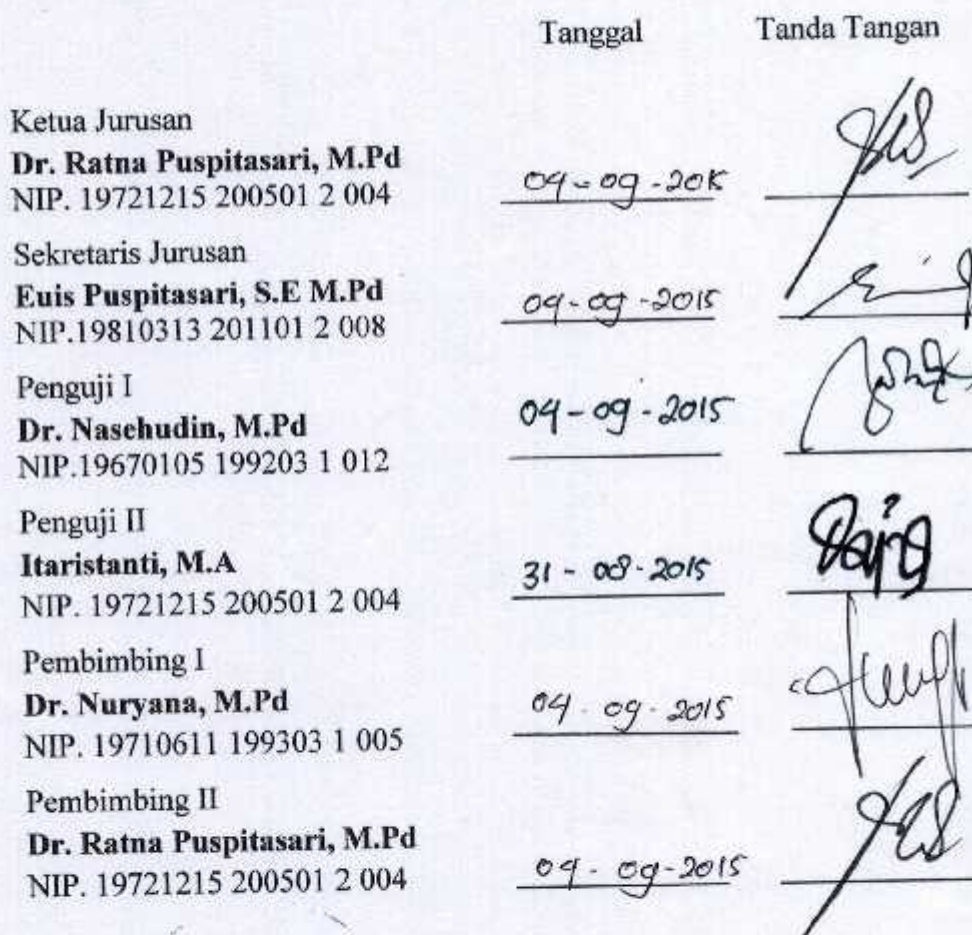 Tanggal Tanda Tangan
Ketua Jurusan
Dr. Ratna Puspitasari, M.Pd
NIP. 19721215 200501 2 004 04-09-2015
Sekretaris Jurusan
Euis Puspitasari, S.E M.Pd
NIP.19810313 201101 2 008 04-09-2015
Penguji I
Dr. Nasehudin, M.Pd 04-09-2015
NIP.19670105 199203 1 012
Penguji II
Itaristanti, M.A
NIP. 19721215 200501 2 004 31-08-2015
Pembimbing I
Dr. Nuryana, M.Pd
NIP. 19710611 199303 1 005 04-09-2015
Pembimbing II
Dr. Ratna Puspitasari, M.Pd
NIP. 19721215 200501 2 004 04-09-2015